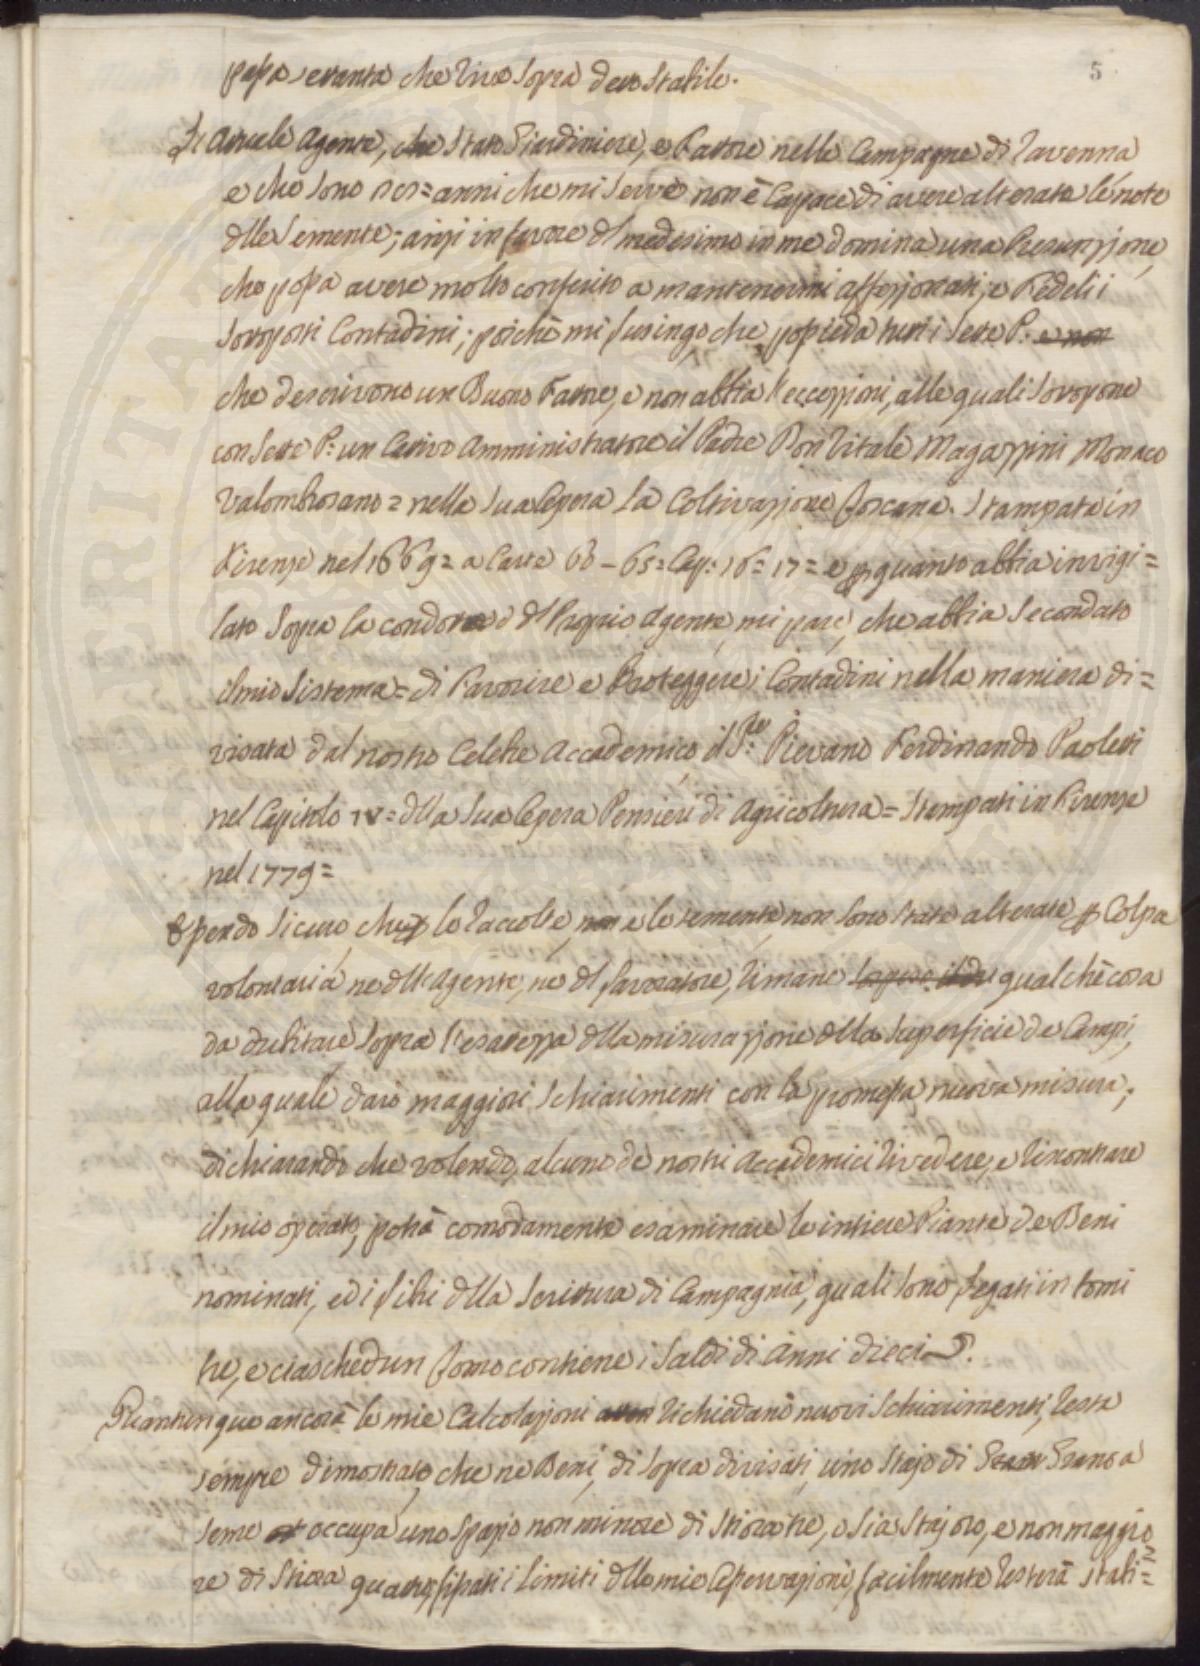 5
passa vedanta che vive sopra detto stabile.
L'Attuale Agente, che stato Giardiniere, e Fattore nelle Campagne di Ravenna
e che sono sei = anni che mi serve non è Capace di avere alterate le note
dlle semente; anzi in favore dl medesimo in me domina una Presunzione,
che possa avere molto conferito a mantenermi affezionati, e Fedeli i
sottoposti Contadini; poichè mi lusingo che possieda tutti i sette P: e non
che descrivono un Buono Fattore, e non abbia l'eccezzioni, alle quali sottopone
con sette P: un Cattivo Amministratore il Padre Don Vitale Magazzini Monaco
Valombrosano = nella sua Opera La Coltivazzione Toscana. Stampata in
Firenze nel 1669 = a Carte 63 - 65 = Cap: 16 = 17 = e p quanto abbia invigi =
lato sopra la condotta dl Proprio Agente, mi pare, che abbia secondato
il mio sistema = di Favorire e Proteggere i Contadini nella maniera di =
visata dal nostro Celebre Accademico il Sr. Pievano Ferdinando Paoletti
nel Capitolo IV = dlla sua Opera Pensieri di Agricoltura = Stampati in Firenze
nel 1779 =
Essendo sicuro, che le raccolte, non e le semente non sono state alterate p Colpa
volontaria ne dll'Agente, ne dl lavoratore, rimane qualche cosa
da dubitare sopra l'esatezza dlla misurazzione dlla superficie de Campi,
alla quale darò maggiori schiarimenti con la promessa nuova misura;
dichiarando che volendo, alcuno de nostri Accademici rivedere, e riscontrare
il mio operato, potrà comodamente esaminare le intiere Piante de Beni
nominati, ed i libri dlla scrittura di Campagnia, quali sono legati in tomi
tre, e ciaschedun Tomo contiene i saldi di Anni dieci.
Quantunque ancora le mie Calcolazioni richiedano nuovi schiarimenti, resta
sempre dimostrato, che ne Beni, di sopra divisati, uno stajo di Gran Grano a
seme occupa uno spazio non minore di stiora tre, o sia stajoro, e non maggio =
re di stiora quattro, fissati i limiti dlle mie Osservazioni, facilmente resterà stabi =